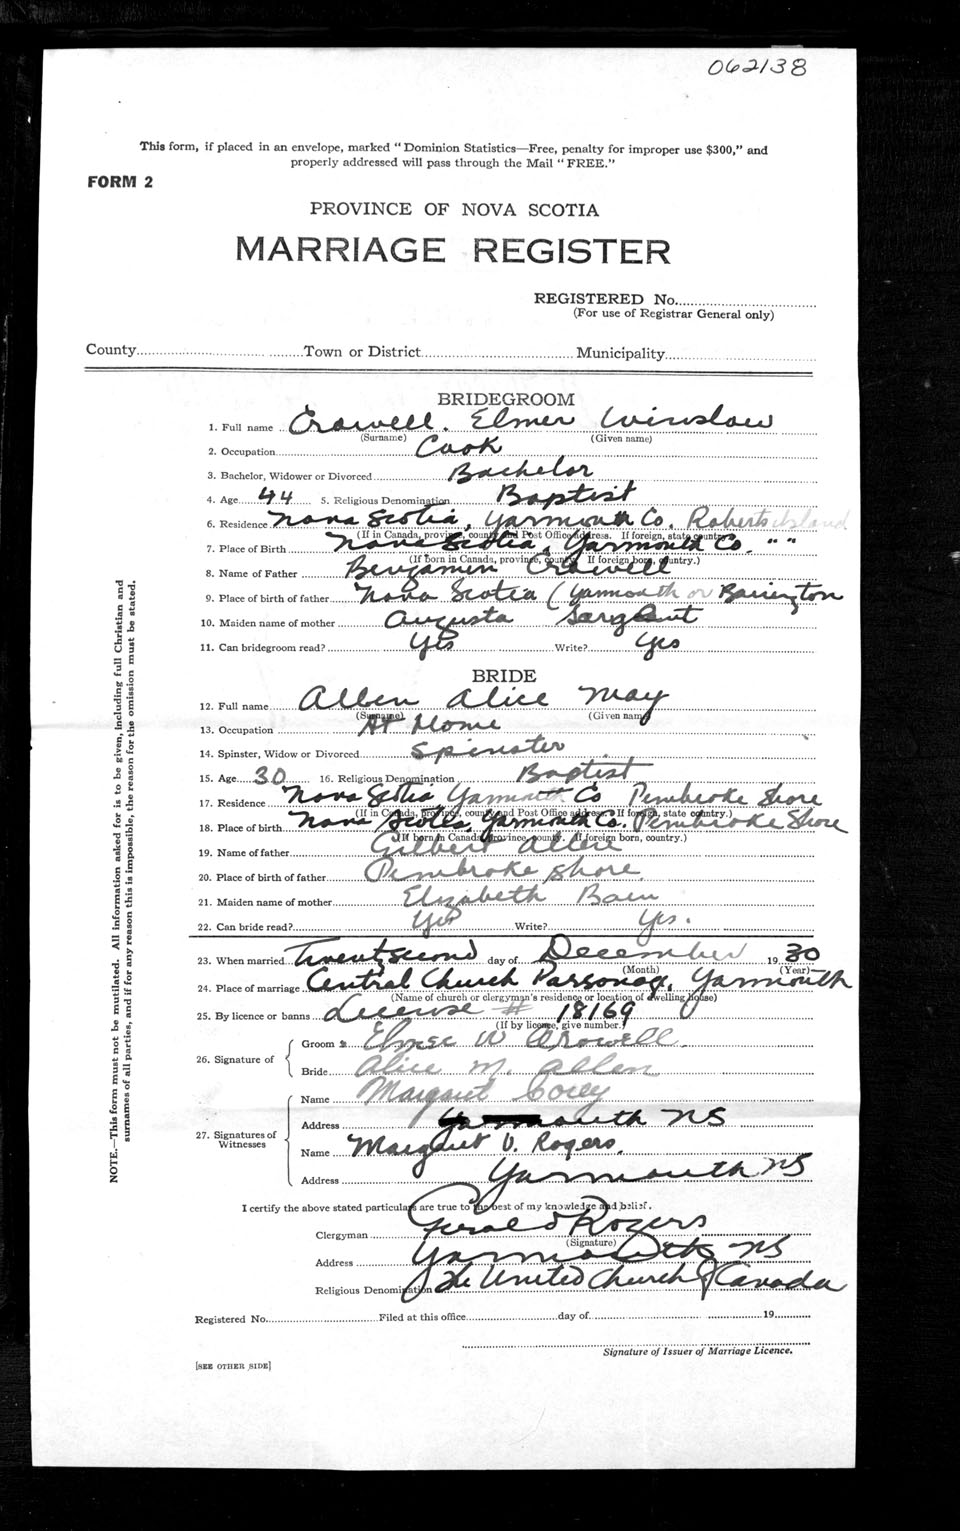 062138
This form, if placed in an envelope, marked "Dominion Statistics—Free, penalty for improper use $300," and
properly addressed will pass through the Mail "FREE."
FORM 2
PROVINCE OF NOVA SCOTIA
MARRIAGE REGISTER
REGISTERED No.
(For use of Registrar General only)
County Town or District Municipality
BRIDEGROOM
1. Full name Crowell. Elmer Winslow
(Surname) (Given name)
2. Occupation Cook
3. Bachelor, Widower or Divorced Bachelor
4. Age 44 5. Religious Denomination Baptist
6. Residence Nova Scotia, Yarmouth Co. Roberts island
(If in Canada, province, county and Post Office address. If foreign, state country)
7. Place of Birth Nova Scotia, Yarmouth Co. " "
(If born in Canada, province, county. If foreign born, country.)
8. Name of Father Benjamin Crowell
9. Place of birth of father Nova Scotia (Yarmouth or Barrington
10. Maiden name of mother Augusta Sargent
11. Can bridegroom read? Yes Write? Yes
BRIDE
12. Full name Allen Alice May
(Surname) (Given name)
13. Occupation At Home
14. Spinster, Widow or Divorced Spinster
15. Age 30 16. Religious Denomination Baptist
17. Residence Nova Scotia Yarmouth Co Pembroke Shore
(If in Canada, province, county and Post Office address. If foreign, state country.)
18. Place of birth Nova Scotia, Yarmouth Co. Pembroke Shore
(If born in Canada, province, county. If foreign born, country.)
19. Name of father Gilbert Allen
20. Place of birth of father Pembroke Shore.
21. Maiden name of mother Elizabeth Bain
22. Can bride read? Yes Write? Yes.
23. When married Twentysecond day of December 1930
(Month) (Year)
24. Place of marriage Central Church Parsonage, Yarmouth
(Name of church or clergyman's residence or location of dwelling house)
25. By licence or banns License # 18169
(If by licence, give number.)
26. Signature of
Groom Elmer W Crowell
Bride Alice M. Allen
27. Signatures of Witnesses
Name Margaret
Address Yarmouth NS
Name Margaret V. Rogers.
Address Yarmouth NS
I certify the above stated particulars are true to the best of my knowledge and belief.
Clergyman Gerald Rogers
(Signature)
Address Yarmouth NS
Religious Denomination The United Church of Canada
Registered No. Filed at this office day of 19
Signature of Issuer of Marriage Licence.
[SEE OTHER SIDE]
NOTE.—This form must not be mutilated. All information asked for is to be given, including full Christian and
surnames of all parties, and if for any reason this is impossible, the reason for the omission must be stated.